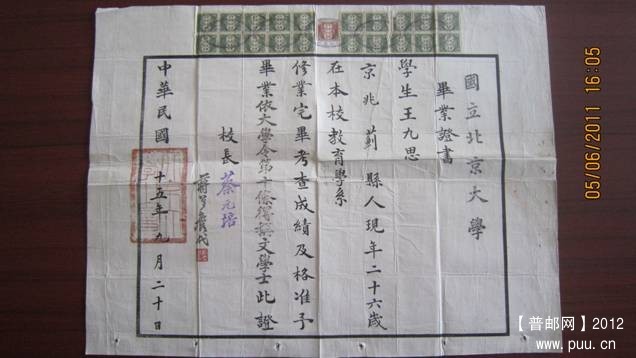 國立北京大學
畢業證書
學生王九思
京兆薊縣人現年二十六歲
在本校教育學系
修業完畢考查成績及格准予
畢業依大學令第十條得稱文學士此證
校長 蔡元培
蔣夢麐代
中華民國十五年九月二十日
05/06/2011 16:05
【普邮网】2012
www.puu.cn